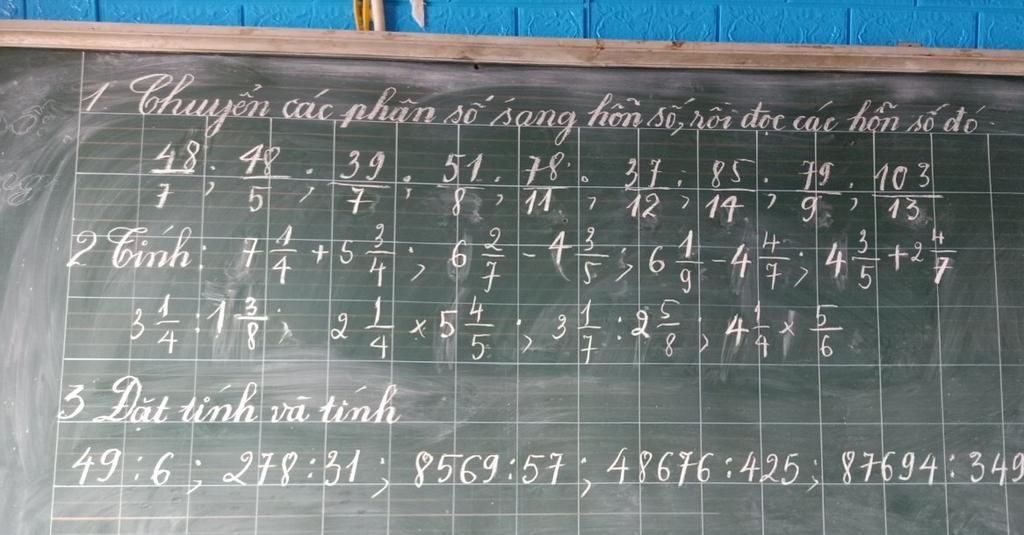 1. Chuyển các phân số sang hỗn số, rồi đọc các hỗn số đó
48/7 ; 48/5 ; 39/7 ; 51/8 ; 78/11 ; 37/12 ; 85/14 ; 79/9 ; 103/13
2 Tính: 7 1/4 + 5 3/4 ; 6 2/7 - 4 3/5 ; 6 1/9 - 4 4/7 ; 4 3/5 + 2 4/7
3 1/4 : 1 3/8 ; 2 1/4 × 5 4/5 ; 3 1/7 : 2 5/8 ; 4 1/4 × 5/6
3 Đặt tính và tính
49 : 6 ; 278 : 31 ; 8569 : 57 ; 48676 : 425 ; 87694 : 349